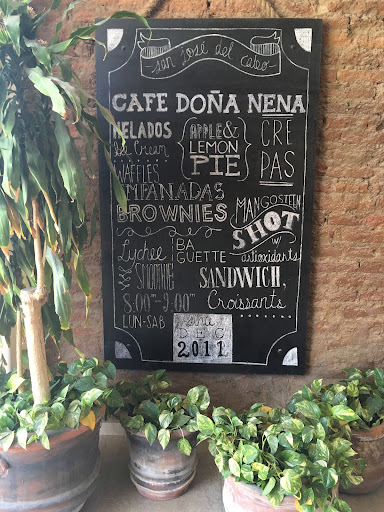 san josé del cabo
CAFE DOÑA NENA
HELADOS
Ice Cream
WAFFLES
APPLE &
LEMON
PIE
CRE
PAS
EMPANADAS
BROWNIES
MANGOSTEEN
SHOT
w/
antioxidants
Lychee
SMOOTHIE
BA
GUETTE
SANDWICH,
Croissants
8:00-9:00
LUN-SAB
DEC
2011